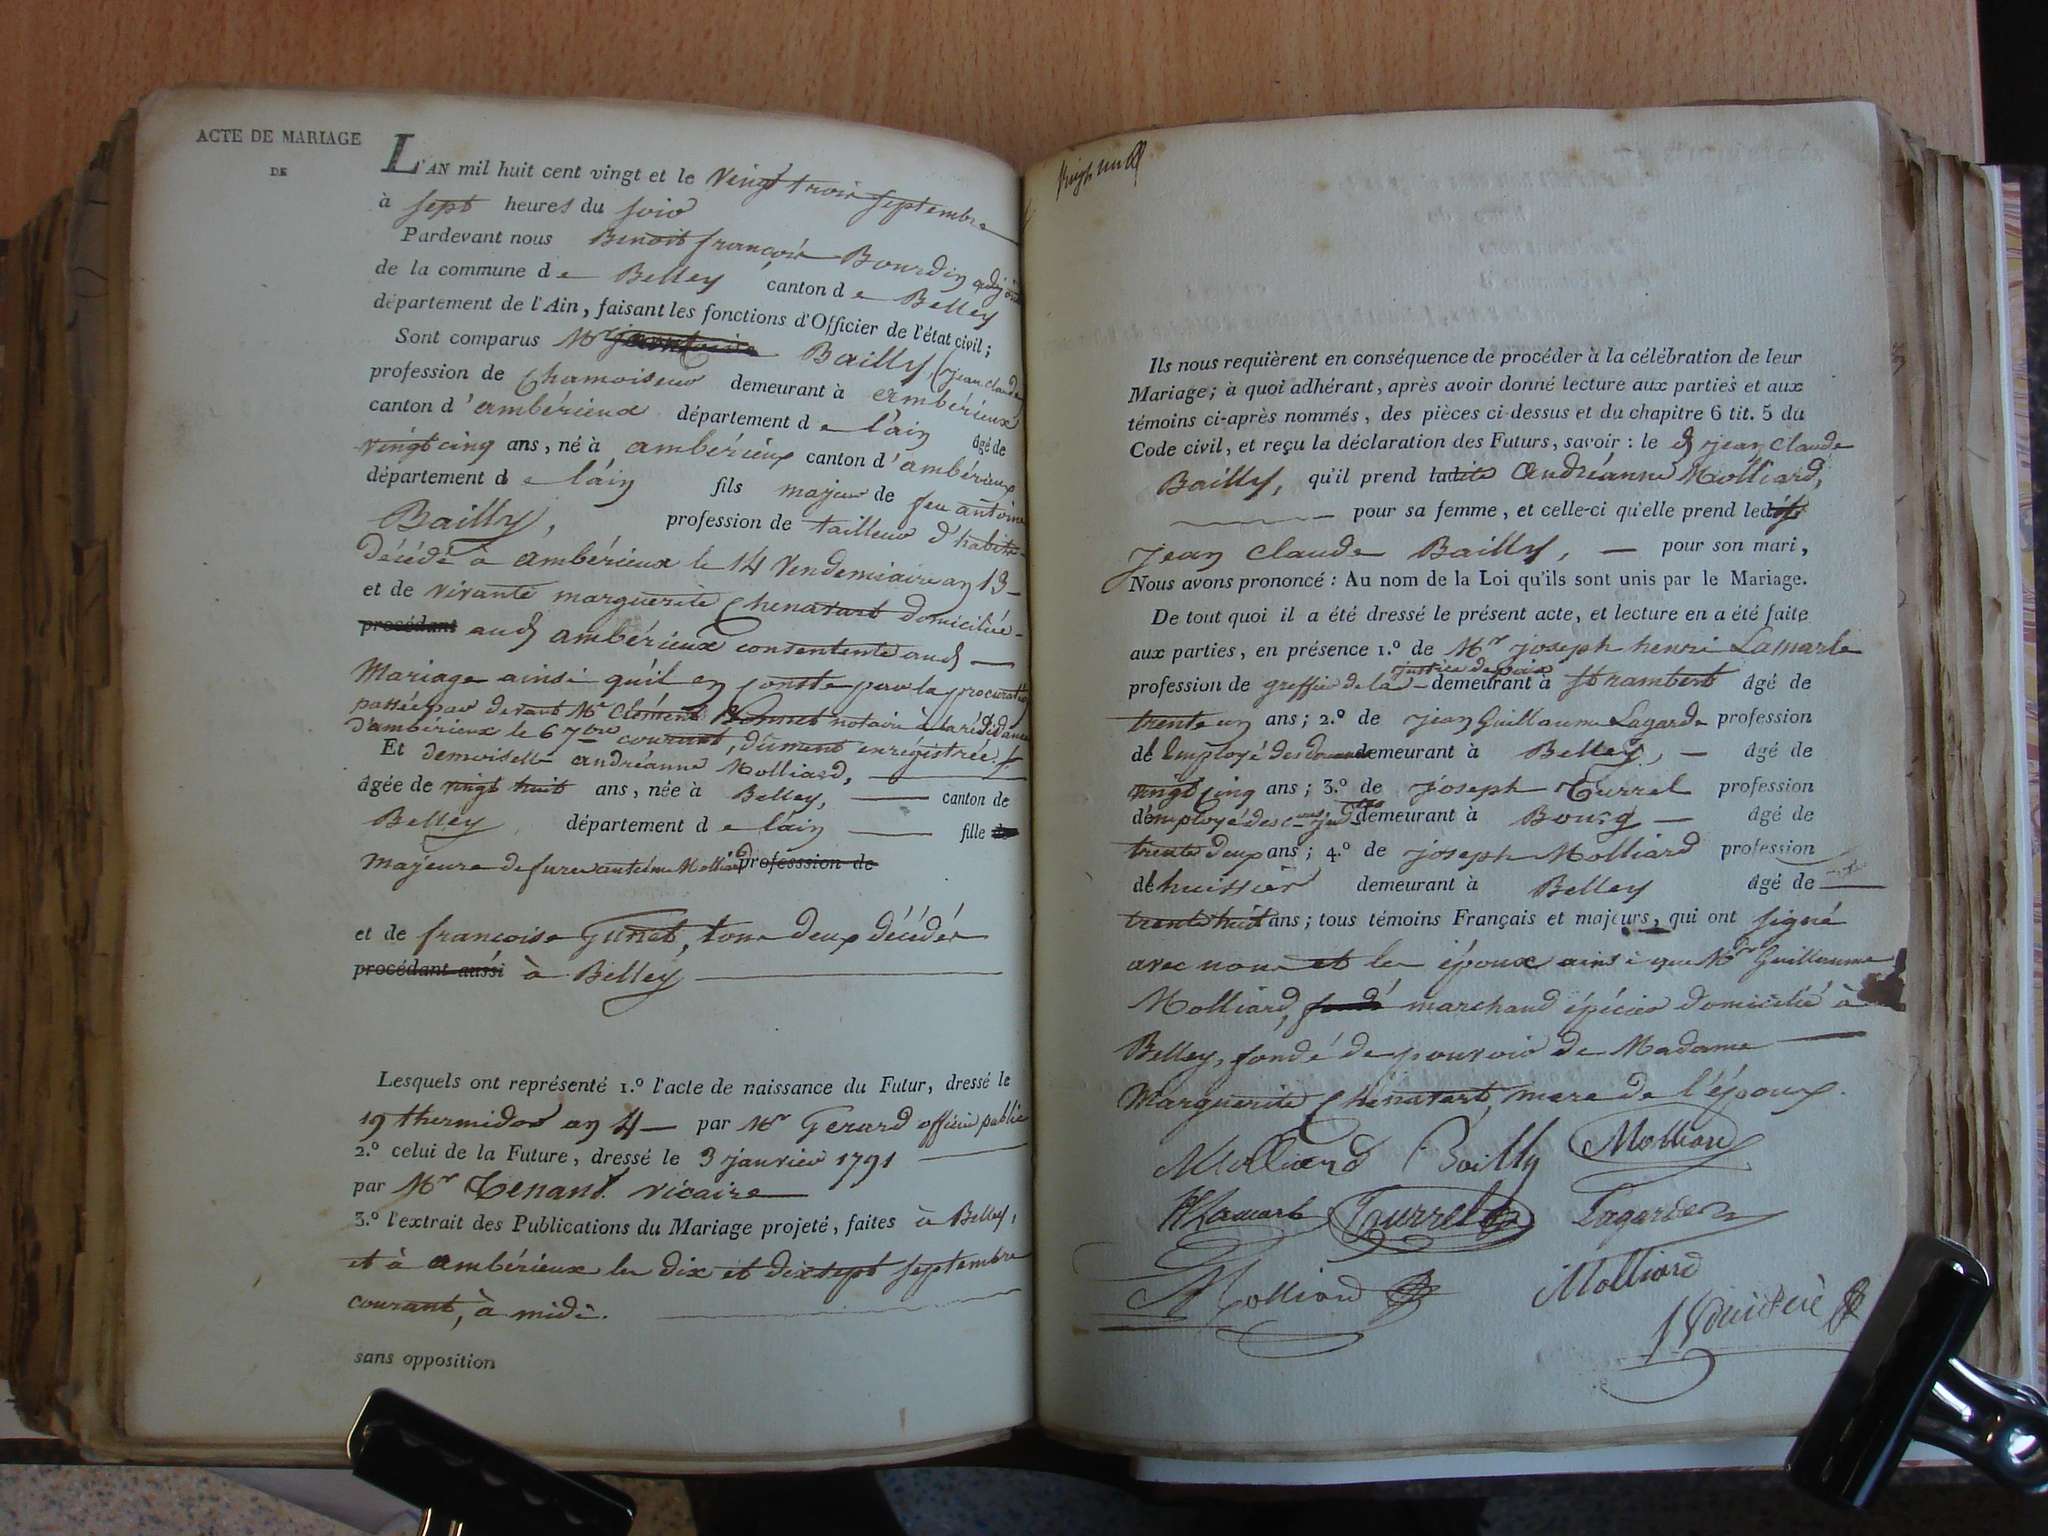 ACTE DE MARIAGE
DE
L'AN mil huit cent vingt et le vingt trois septembre
à sept heures du soir
Pardevant nous Benoit françois Bourdin adjoint
de la commune de Belley canton de Belley
département de l'Ain, faisant les fonctions d'Officier de l'état civil;
Sont comparus Mr Bailly, (jean claude
profession de Chamoiseur demeurant à ambérieux
canton d'ambérieux département de l'ain âgé de
vingt cinq ans, né à ambérieux canton d'ambérieux
département de l'ain fils majeur de feu antoine
Bailly, profession de tailleur d'habits
décédé à ambérieux le 14 Vendemiaire an 13
et de vivante marguerite Chenavart domiciliée
procédant aud ambérieux consentente aud
Mariage ainsi qu'il en conste par la procuration
passée par devant Mr Clément Bonnet notaire à la résidance
d'ambérieux le 6 7bre courant, dument enregistrée
Et demoiselle andréanne Molliard,
âgée de vingt huit ans, née à Belley, canton de
Belley département de l'ain fille de
majeure de furent anteime Molliard professsion de
et de françoise Gunet, tous deux décédés
procédant aussi à Belley
Lesquels ont représenté 1.º l'acte de naissance du Futur, dressé le
19 thermidor an 4 par Mr Gerard officier public
2.º celui de la Future, dressé le 3 janvier 1791
par Mr Tenand vicaire
3.º l'extrait des Publications du Mariage projeté, faites à Belley,
et à ambérieux les dix et dix sept septembre
courant, à midi.
sans opposition
Ils nous requièrent en conséquence de procéder à la célébration de leur
Mariage; à quoi adhérant, après avoir donné lecture aux parties et aux
témoins ci-après nommés, des pièces ci-dessus et du chapitre 6 tit. 5 du
Code civil, et reçu la déclaration des Futurs, savoir: le d jean Claude
Bailly, qu'il prend ladite andréanne Molliard,
pour sa femme, et celle-ci qu'elle prend ledit
jean claude Bailly, pour son mari,
Nous avons prononcé: Au nom de la Loi qu'ils sont unis par le Mariage.
De tout quoi il a été dressé le présent acte, et lecture en a été faite
aux parties, en présence 1.º de Mr joseph henri Lamarle
justice de paix
profession de greffier de la demeurant à St rambert âgé de
trente un ans; 2.º de jean Guillaume Lagarde profession
de Employé des demeurant à Belley, âgé de
vingt cinq ans; 3.º de joseph Turrel profession
demployé des demeurant à Bourg âgé de
trente deux ans; 4.º de joseph Molliard profession
de huissier demeurant à Belley âgé de
trente huit ans; tous témoins Français et majeurs, qui ont signé
avec nous et les époux ainsi que Mr Guillaume
Molliard, fondé marchand épicier domicilié à
Belley, fondé de pouvoir de Madame
Marguerite Chenavart, mere de l'époux.
Molliard Bailly Molliard
Lamarle Turrel Lagarde
Molliard Molliard